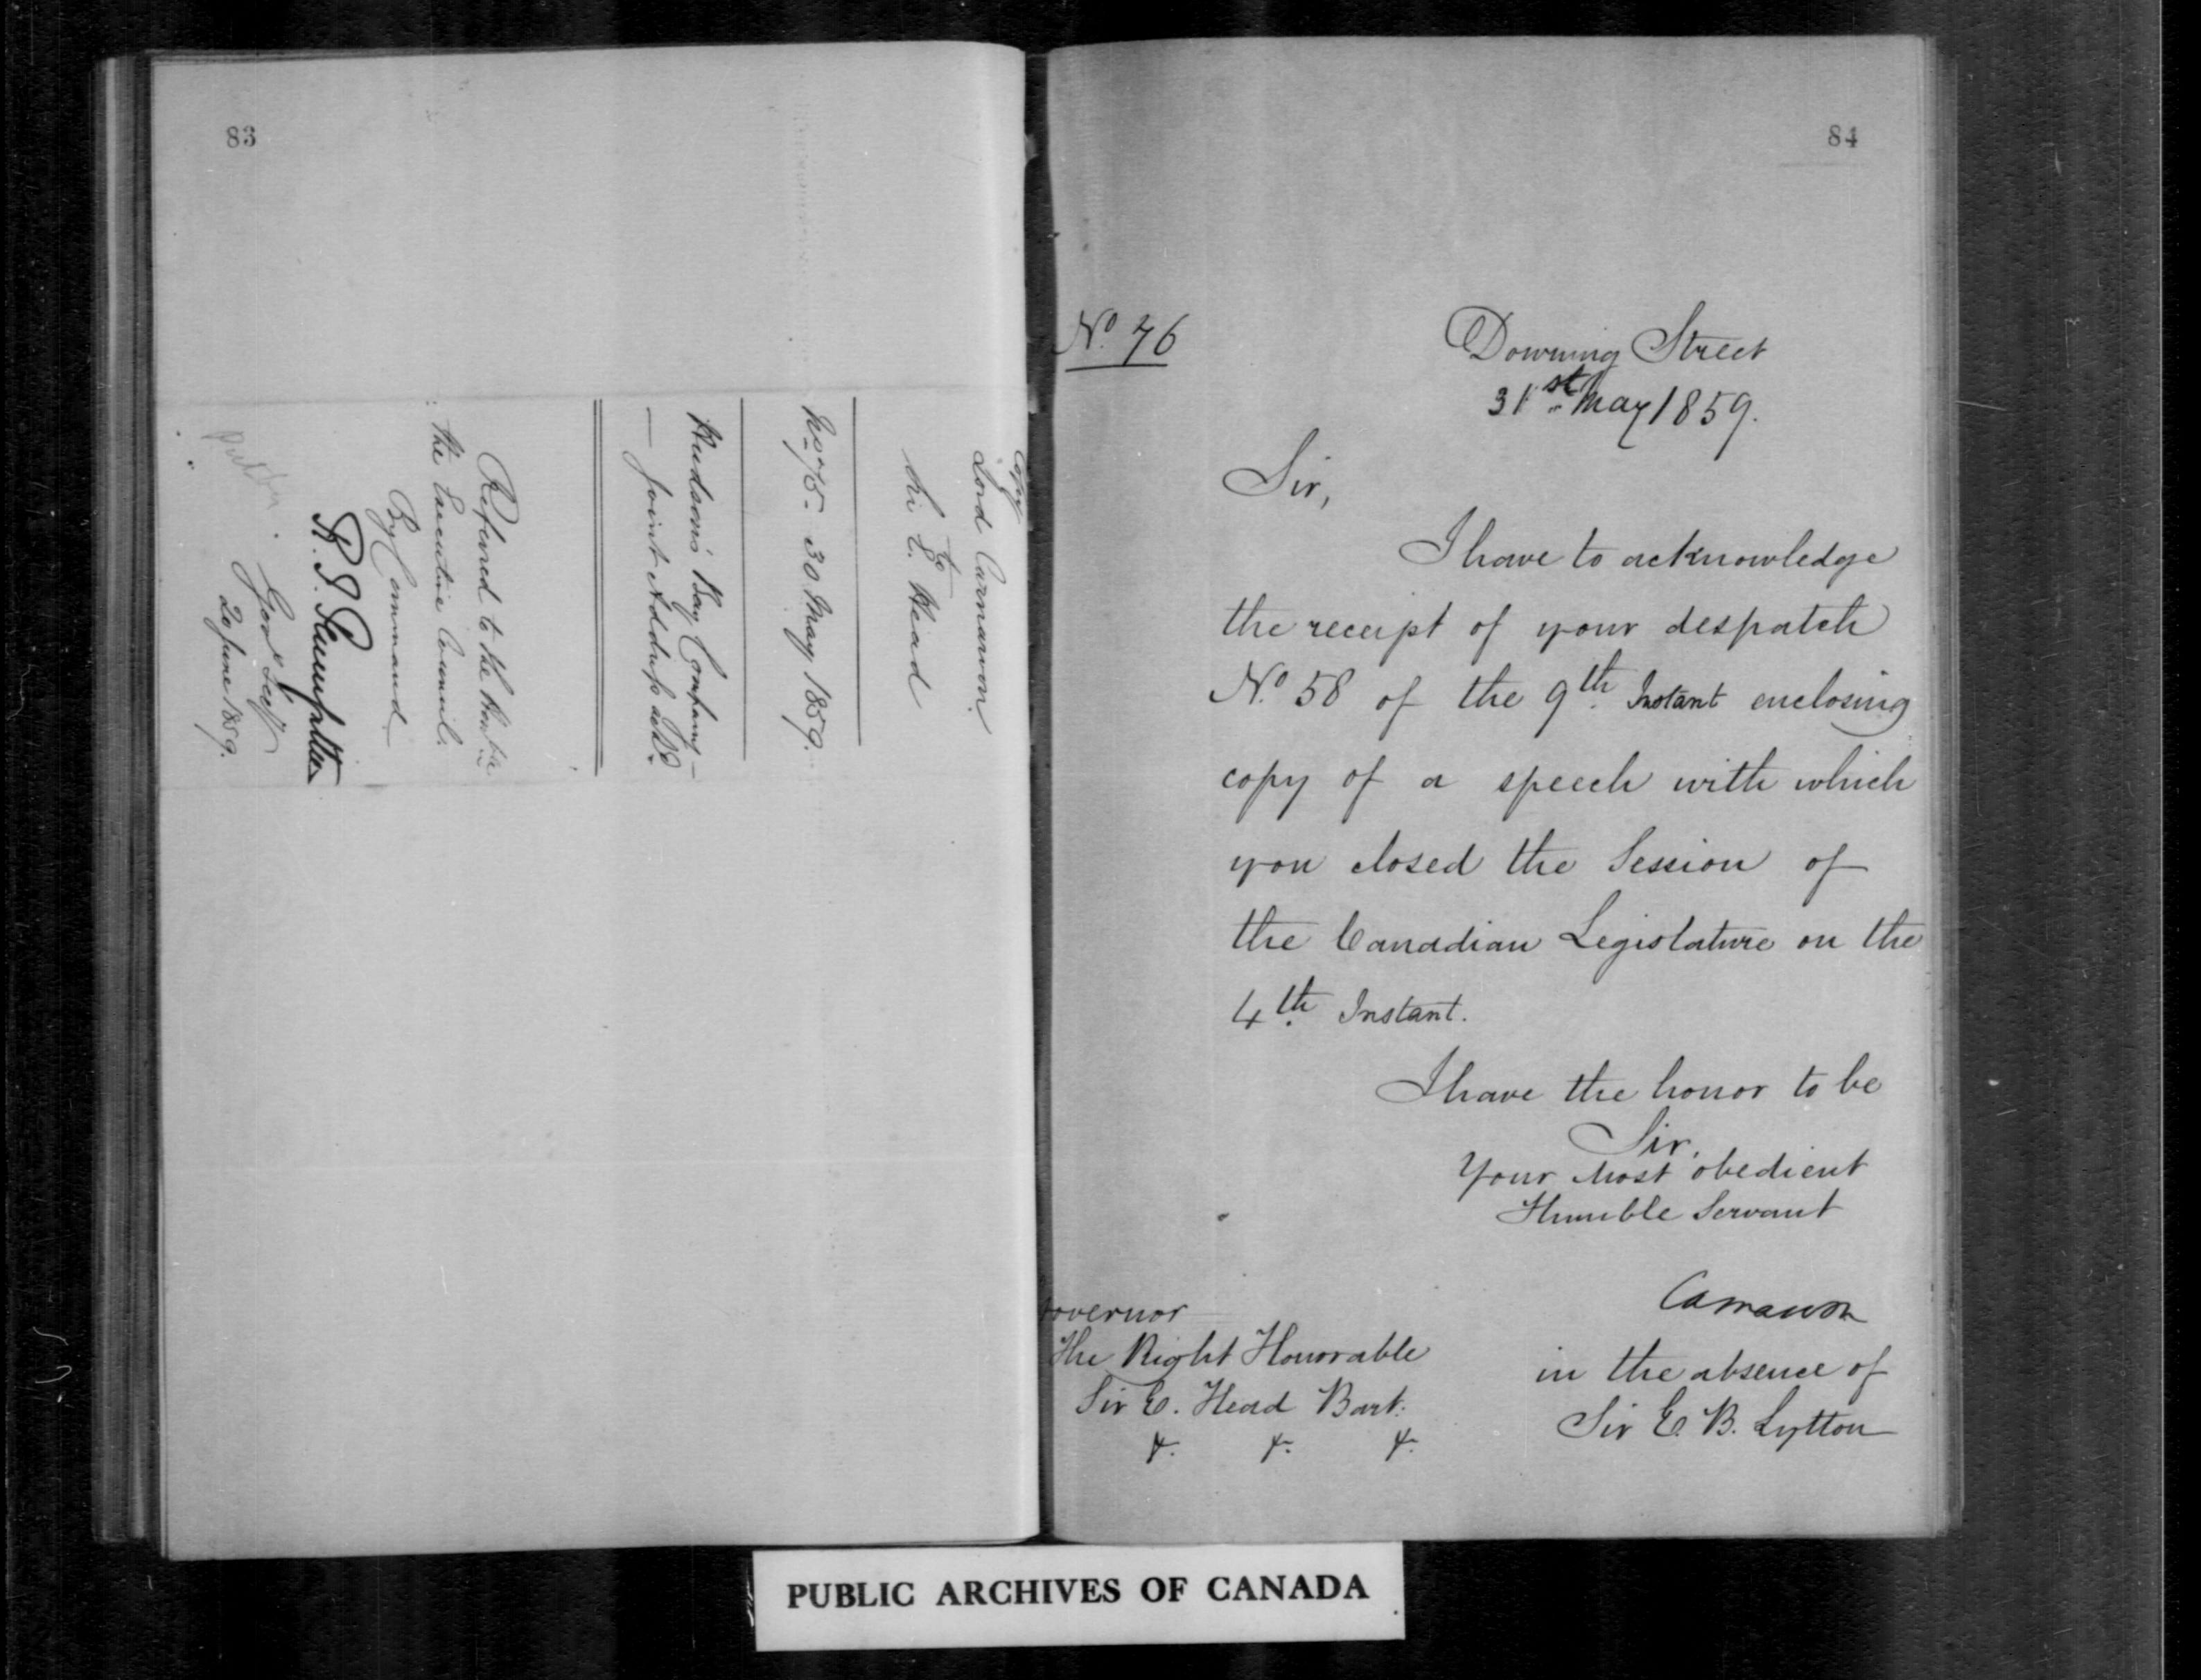 83
Copy
Lord Carnarvon
to
Sir E. Head
No. 75 - 30 May 1859.
Hudson's Bay Company -
- Joint Address
Referred to the
the Executive Council.
By Command
R. T. Pennefather
Gov. Sec.
20 June 1859.
84
No. 76
Downing Street
31st May 1859.
Sir,
I have to acknowledge
the receipt of your despatch
No. 58 of the 9th Instant enclosing
copy of a speech with which
you closed the Session of
the Canadian Legislature on the
4th Instant.
I have the honor to be
Sir,
Your most obedient
Humble Servant
Carnarvon
in the absence of
Sir E. B. Lytton
Governor
The Right Honorable
Sir E. Head Bart.
&. &. &.
PUBLIC ARCHIVES OF CANADA